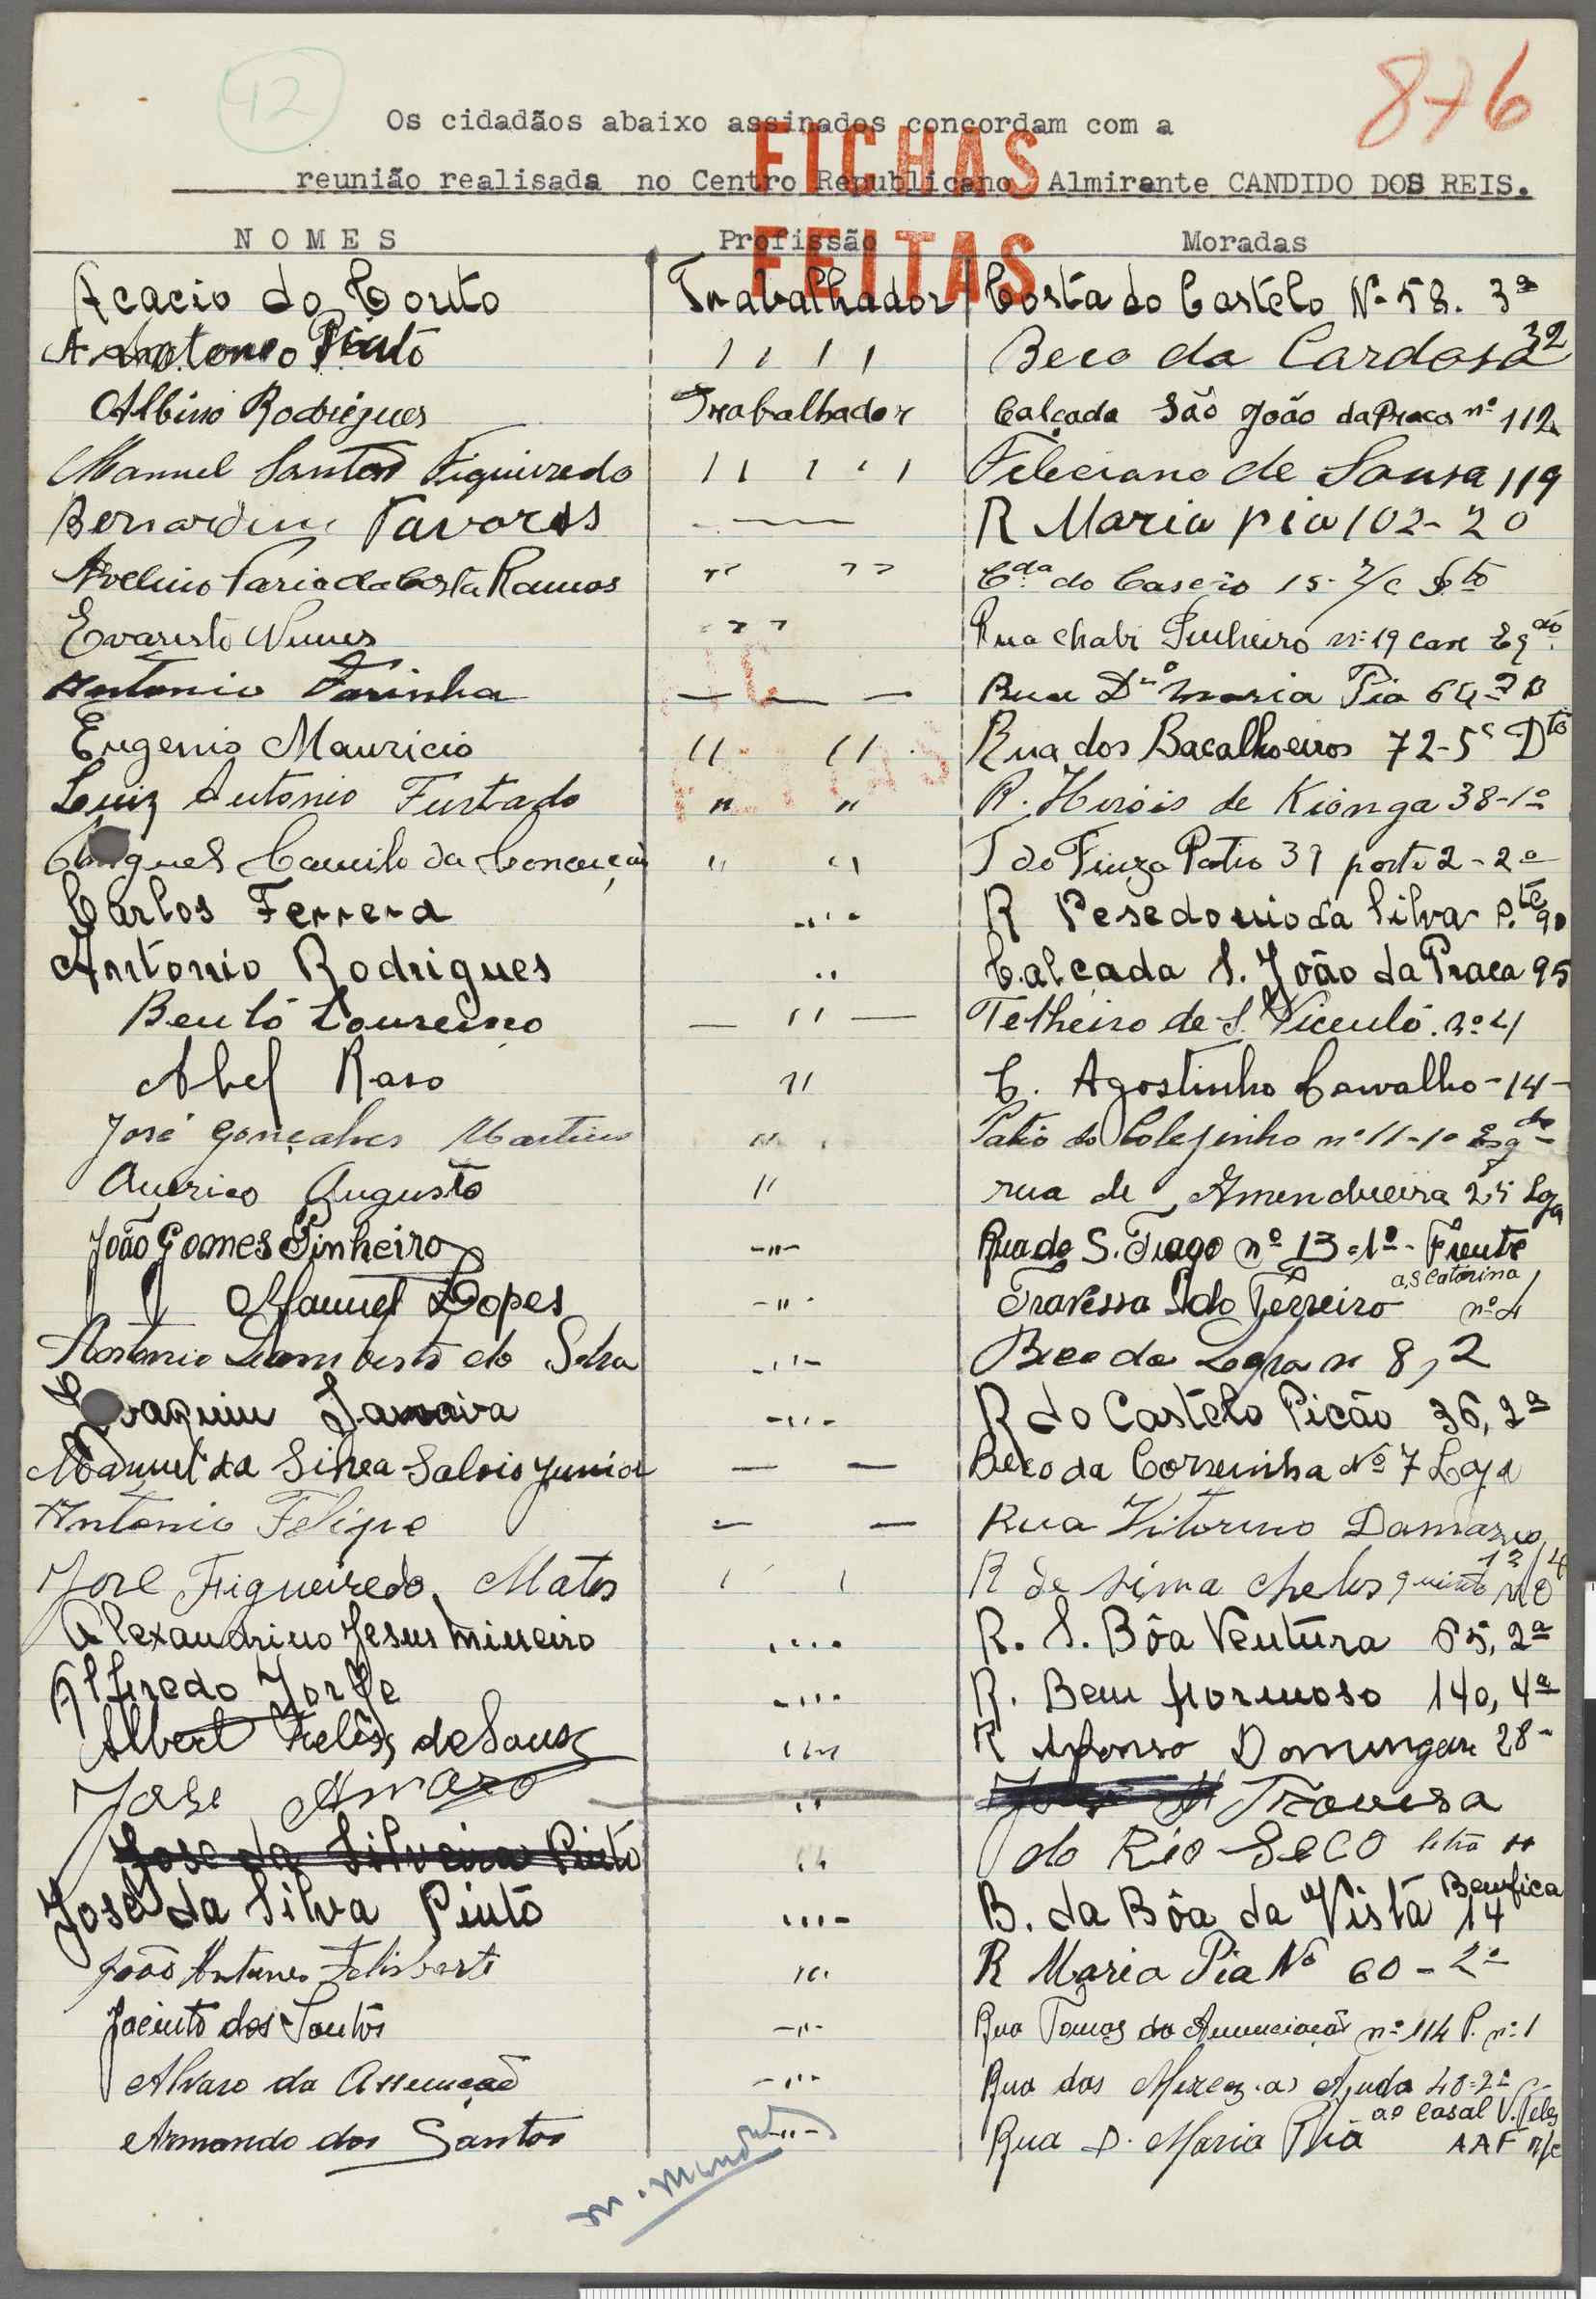 42
876
Os cidadãos abaixo assinados concordam com a
reunião realisada no Centro Republicano Almirante CANDIDO DOS REIS.
FICHAS
FEITAS
NOMES Profissão Moradas
Acacio do Couto Trabalhador Costa do Castelo Nº 58. 3º
Antoneo Pinto " " Beco da Cardosa 32
Albino Rodrigues Trabalhador Calçada São João da Praca nº 112
Manuel Santos Figuiredo " " Feleciano de Sousa 119
Bernardino Tavares — R Maria pia 102-2º
Avelino Faria da Costa Ramos " " Cda do Caseiro 15-r/c
Evaristo Nunes " " Rua Chabi Pinheiro nº 19 Esqdo
Antonio Farinha — — — Rua Dna Maria Pia
Eugenio Mauricio " " Rua dos Bacalhoeiros 72-5º Dto
Luiz Antonio Furtado " " R. Herois de Kionga 38-1º
Camilo da Conceição " " Patio 39 porta 2-2º
Carlos Ferrera " R da Silva Pte 90
Antonio Rodrigues " Calçada S. João da Praca 95
Bento Loureiro — " — Telheiro de S. Vicente. nº 4
Abel Raso " C. Agostinho Carvalho-14-
José Gonçalves Martins " Patio do Colejinho nº 11-1º Esqdo
Americo Augusto " rua de Amendueira 25 Loja
João Gomes Pinheiro -"- Rua de S. Tiago nº 13-1º-Frente
Manuel Lopes -"- Travessa do Terreiro a S. Catarina nº 4
Antonio da Silva -"- Beco da 8, 2
Joaquim -"- R do Castelo Picão 36, 2º
Manuel da Silva Junior — — Beco da Correinha Nº 7 Loja
Antonio Felipe — — Rua Vitorino Damazio
José Figueiredo Matos " " R de sima chelas
Alexandrino Jesus Mineiro " R. S. Bôa Ventura 65, 2º
Alfredo Jorge -"- R. Bem formoso 140, 4º
Albert de Sousa " R Afonso Domingues 28-
Jose Amaro " Travesa
Jose da Silveira Pinto " do Rio Seco letra
José da Silva Pinto -"- B. da Bôa da Vista 14 Bemfica
João Antunes Feliberto " R Maria Pia Nº 60-2º
Jacinto dos Santos -"- Rua Tomas da Anunciação nº 114 P. nº 1
Alvaro da Assunção -"- Rua das Ajuda 40-2º
Armando dos Santos -"- Rua D. Maria Pia ao Casal V. Teles AAF r/c